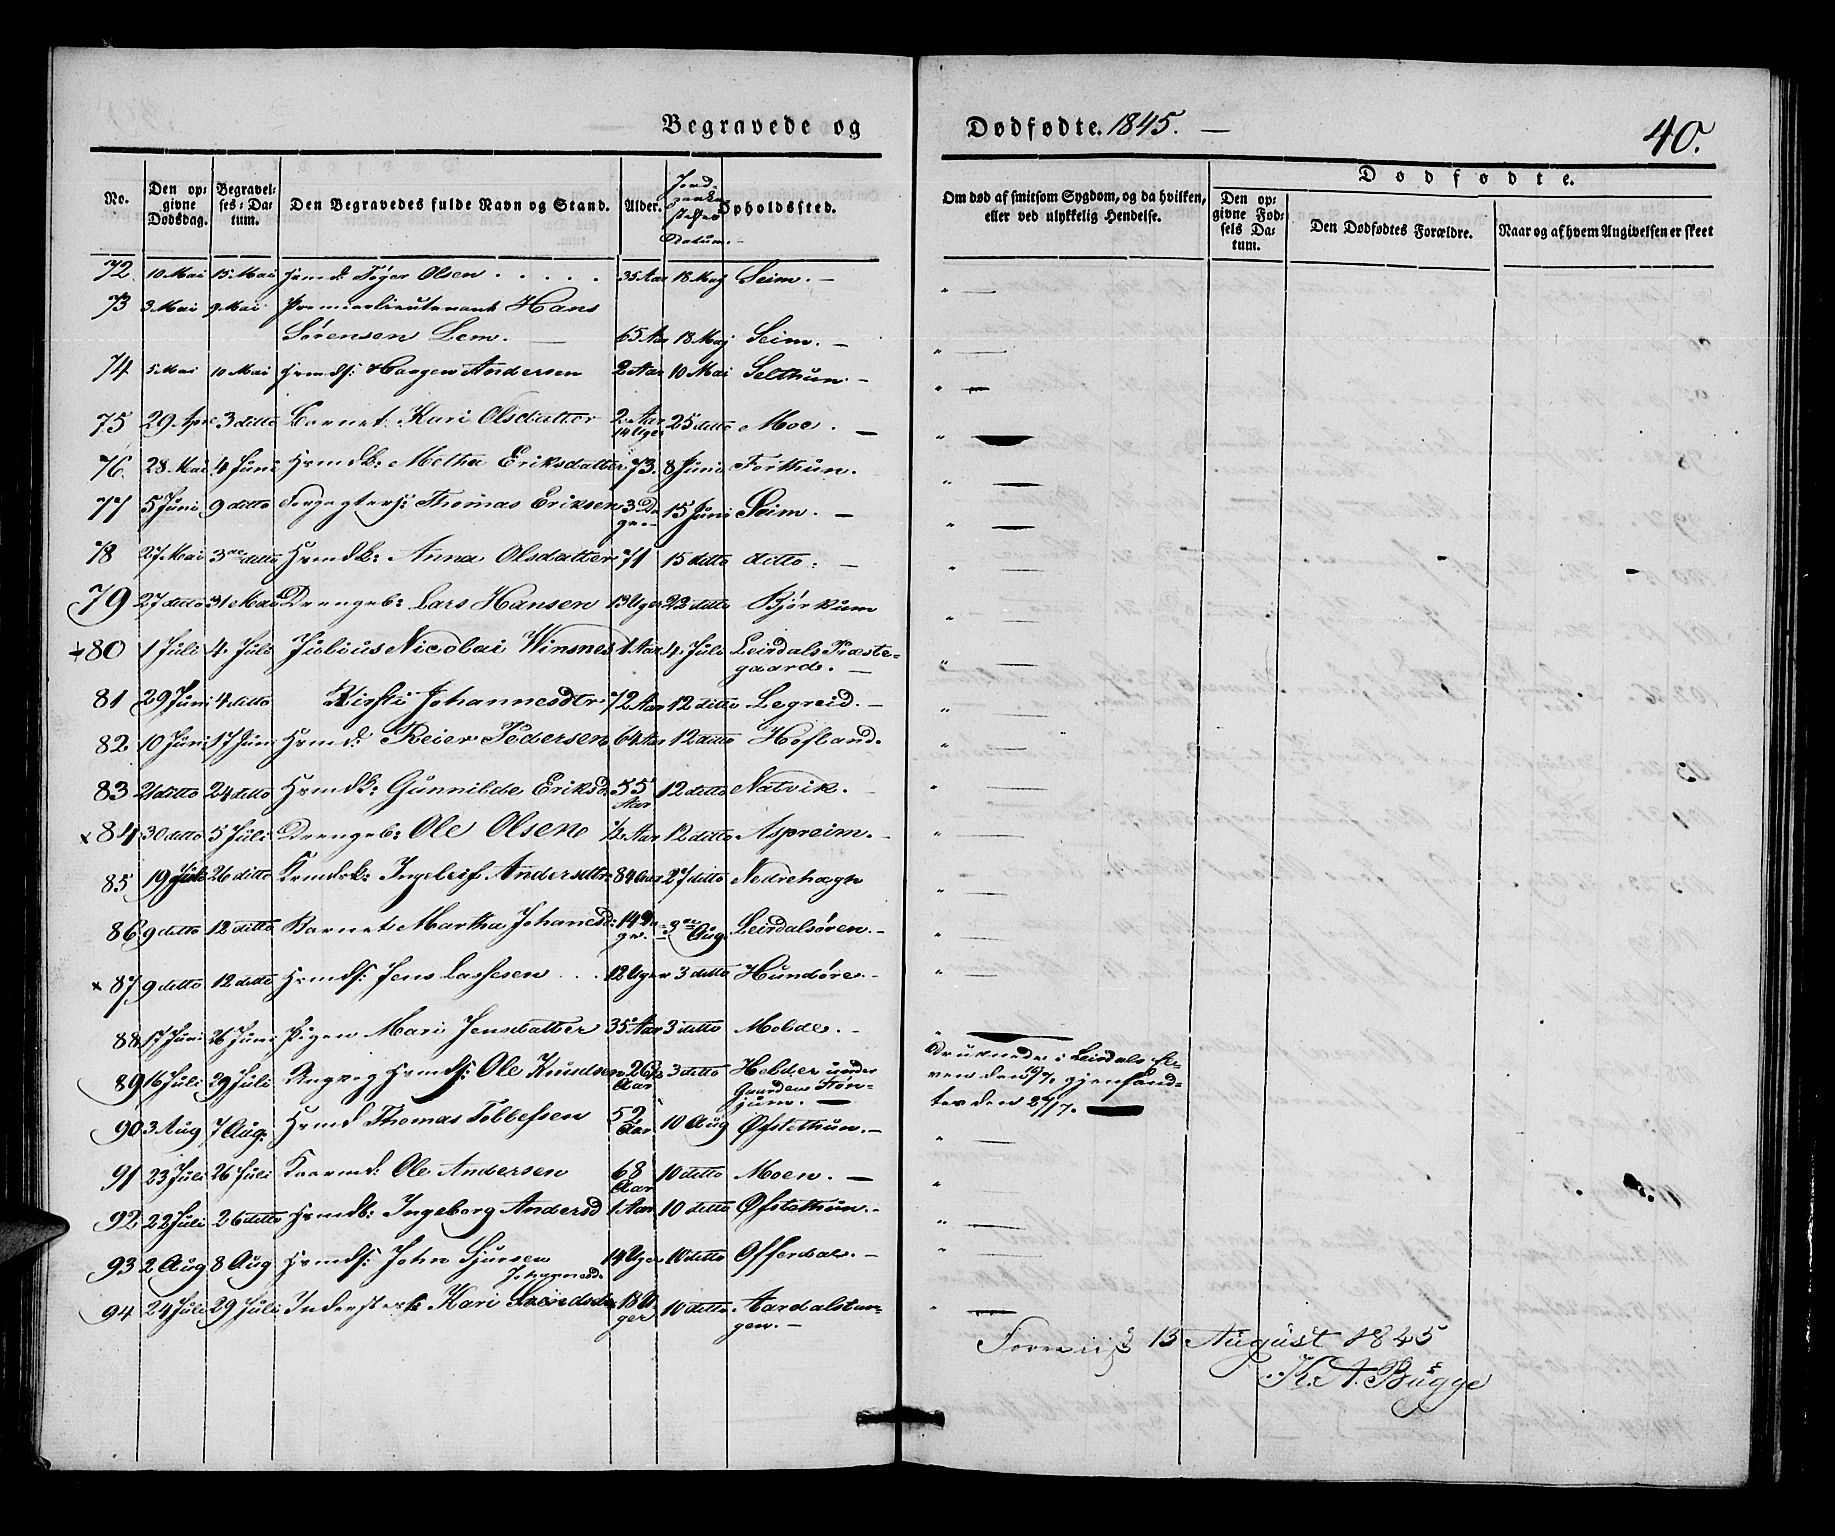 Begravede og
Dødfødte. 1845. —
40.
No.
Den op=
givne
Dødsdag.
Begravel=
ses=Da=
tum.
Den Begravedes fulde Navn og Stand.
Alder.
Jord=
paaka=
stelses
Datum.
Opholdssted.
Om død af smitsom Sygdom, og da hvilken,
eller ved ulykkelig Hendelse.
Dødfødte.
Den op=
givne Fød=
sels Da=
tum.
Den Dødfødtes Forældre.
Naar og af hvem Angivelsen er skeet
72. 10 Mai 15 Mai Hsmd. Tøger Olsen . . . . . 35 Aar 18 Maj Seim. —
73 3 Mai 9 Mai Premierlieutenant Hans
Sørensen Lem. — 65 Aar 18 Maj Seim. —
74 5 Mai 10 Mai Hsmds: Haagen Andersen 2 Aar 10 Mai Selthun. —
75 29 Apr 3 ditto Barnet Kari Olsdatter 2 Aar 14 Uger 25 ditto Moe. —
76. 28 Mai 4 Juni Hsmdk: Metha Eriksdatter 73. 8 Juni Forthun.
77 5 Juni 9 ditto Forpagters: Thomas Eriksen 3 Da
ge 15 Juni Seim. —
78 27 Mai 3 ditto Hsmdk: Anna Olsdatter 71 15 ditto ditto: —
79 27 ditto 31 Mai Drengeb: Lars Hansen 13 Uger 22 ditto Bjørkum
+80 1 Juli 4 Juli Julius Nicolai Winsnes 1 Aar 4 Juli Leirdals Præste=
gaard. —
81 29 Juni 4 ditto Kirsti Johannesdtr 72 Aar 12 ditto Legreid. —
82. 10 Juni 17 Juni Hsmd: Reier Pedersen 64 Aar 12 ditto Hofland.
83 21 ditto 24 ditto Hsmdk: Gunnilde Eriksd. 55
Aar 12 ditto Natvik. —
x 84 30 ditto 5 Juli Drengeb: Ole Olsen ½ Aar 12 ditto Aspreim. —
85 19 Juli 26 ditto Ingeleif Andersdtr 84 Aar 27 ditto Nedrehægn
86 9 ditto 12 ditto Barnet Martha Johanesd: 14 Da
ge. 3 Aug. Leirdalsøren. —
x 87 9 ditto 12 ditto Hsmds: Jens Lassesen . . . 12 Uger 3 ditto Hundøre. —
88 17 Juni 26 Juni Pigen Mari Jensdatter 35 Aar 3 ditto Molde. —
89 16 Juli 29 Juli Ungkrig Hsmds: Ole Knudsen 26
Aar 3 ditto Helder under
Gaarden Tøn=
jum. —
Druknede i Leirdals El=
ven den 16/7. gjenfand=
tes den 27/7. —
90 3 Aug 7 Aug: Hsmd Thomas Tollefsen 52
Aar 10 Aug Øfstethun. —
91 23 Juli 26 Juli Kaarmd: Ole Andersen 68
Aar 10 ditto Moen. —
92 22 Juli 26 ditto Hsmdb: Ingeborg Andersd 1 Aar 10 ditto Øfstethun. —
93 2 Aug 8 Aug Hsmds: John Sjursen 14 Uger 10 ditto Offerdal. —
Johannesd.
94 24 Juli 29 Juli Inderst Kari 18 U
ger 10 ditto Aardalstan=
gen. —
13 August 1845
K. A. Bugge